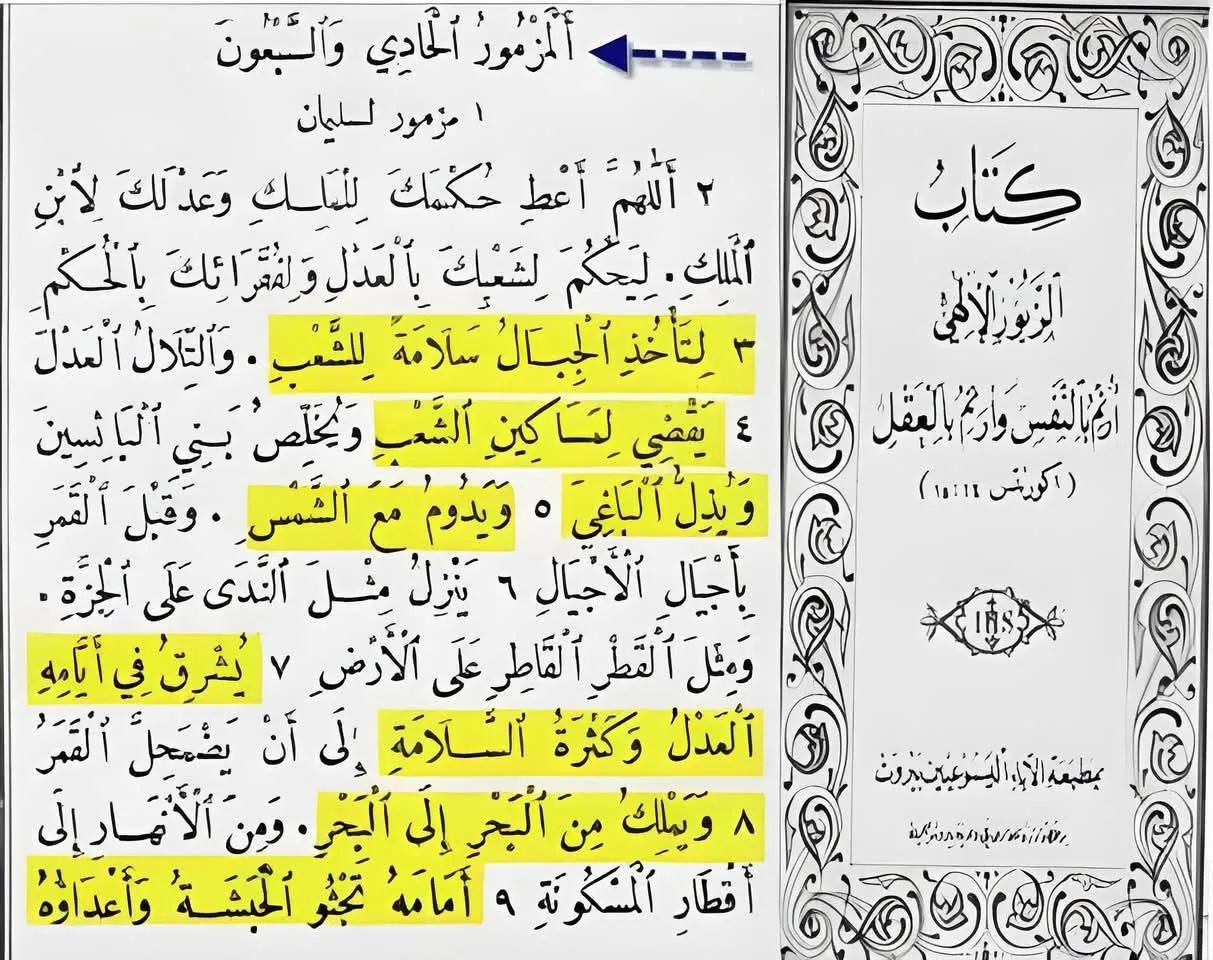 أَلْمَزْمُورُ ٱلْحَادِي وَٱلسَّبْعُونَ
١ مزمور لسليمان
٢ أَللّٰهُمَّ أَعْطِ حُكْمَكَ لِلْمَلِكِ وَعَدْلَكَ لِٱبْنِ
ٱلْمَلِكِ. لِيَحْكُمَ لِشَعْبِكَ بِٱلْعَدْلِ وَلِفُقَرَائِكَ بِٱلْحُكْمِ
٣ لِتَأْخُذِ ٱلْجِبَالُ سَلَامَةً لِلشَّعْبِ. وَٱلتِّلَالُ ٱلْعَدْلَ
٤ يَقْضِي لِمَسَاكِينِ ٱلشَّعْبِ وَيُخَلِّصُ بَنِي ٱلْبَائِسِينَ
وَيُذِلُّ ٱلْبَاغِيَ ٥ وَيَدُومُ مَعَ ٱلشَّمْسِ. وَقَبْلَ ٱلْقَمَرِ
بِأَجْيَالِ ٱلْأَجْيَالِ ٦ يَنْزِلُ مِثْلَ ٱلنَّدَى عَلَى ٱلْجِزَّةِ.
وَمِثْلَ ٱلْقَطْرِ ٱلْقَاطِرِ عَلَى ٱلْأَرْضِ ٧ يُشْرِقُ فِي أَيَّامِهِ
ٱلْعَدْلُ وَكَثْرَةُ ٱلسَّلَامَةِ إِلَى أَنْ يَضْمَحِلَّ ٱلْقَمَرُ
٨ وَيَمْلِكُ مِنَ ٱلْبَحْرِ إِلَى ٱلْبَحْرِ. وَمِنَ ٱلْأَنْهَارِ إِلَى
أَقْطَارِ ٱلْمَسْكُونَةِ ٩ أَمَامَهُ تَجْثُو ٱلْحَبَشَةُ وَأَعْدَاؤُهُ
كِتَابُ
ٱلزَّبُورِ ٱلْإِلٰهِيِّ
أُرَتِّمُ بِٱلنَّفْسِ وَأُرَتِّمُ بِٱلْعَقْلِ
IHS
بمطبعة الآباء اليسوعيين بيروت